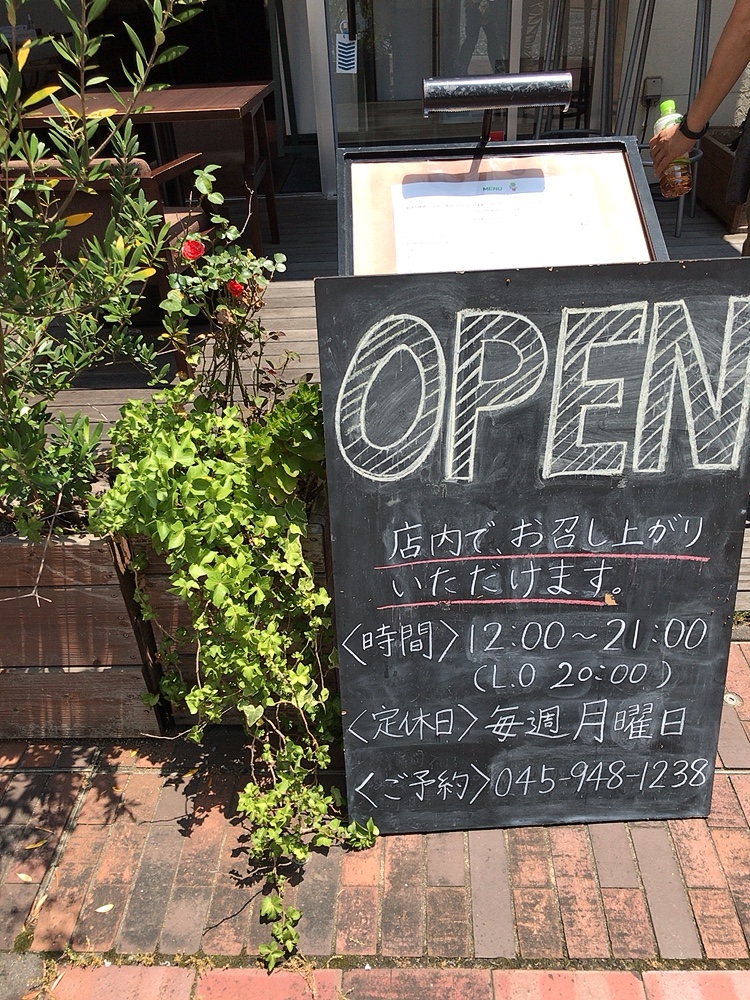 MENU
OPEN
店内で、お召し上がり
いただけます。
〈時間〉12:00〜21:00
(L.O 20:00)
〈定休日〉毎週月曜日
〈ご予約〉045-948-1238